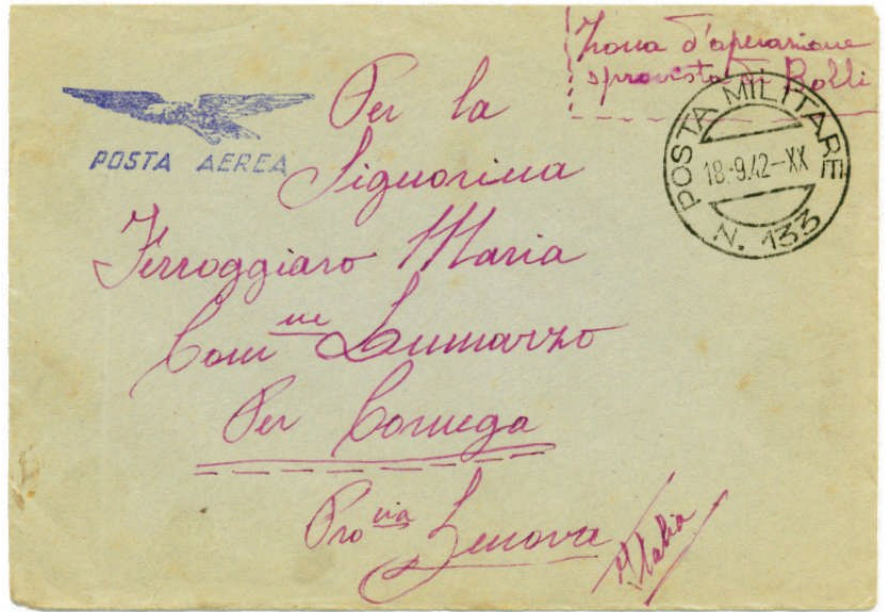 Zona d'operazione
sprovvista di Bolli
POSTA AEREA
POSTA MILITARE
18.-9.42-XX
N. 133
Per la
Signorina
Ferroggiaro Maria
Com ne Lumarzo
Per Cornega
Pro cia Genova
Italia